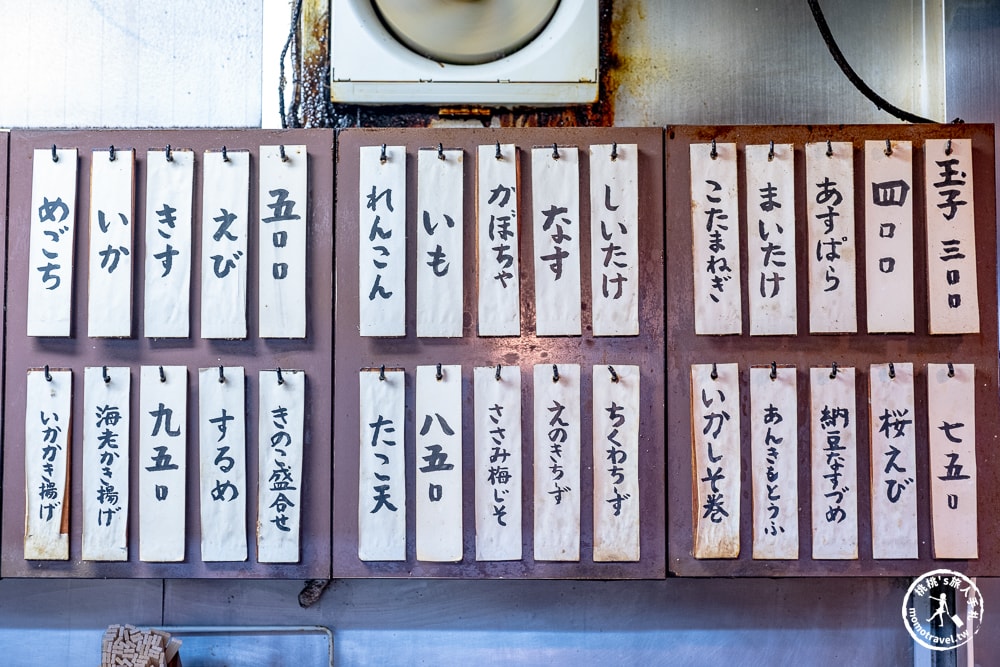 玉子 三〇〇
四〇〇
あすぱら
まいたけ
こたまねぎ
しいたけ
なす
かぼちゃ
いも
れんこん
五〇〇
えび
きす
いか
めごち
七五〇
桜えび
納豆なすづめ
あんきもとうふ
いかしそ巻
ちくわちず
えのきちず
ささみ梅じそ
八五〇
たこ天
きのこ盛合せ
するめ
九五〇
海老かき揚げ
いかかき揚げ
桃桃's旅人手札
momotravel.tw